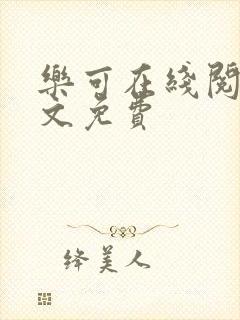 樂可在綫閱
文免費
絳美人